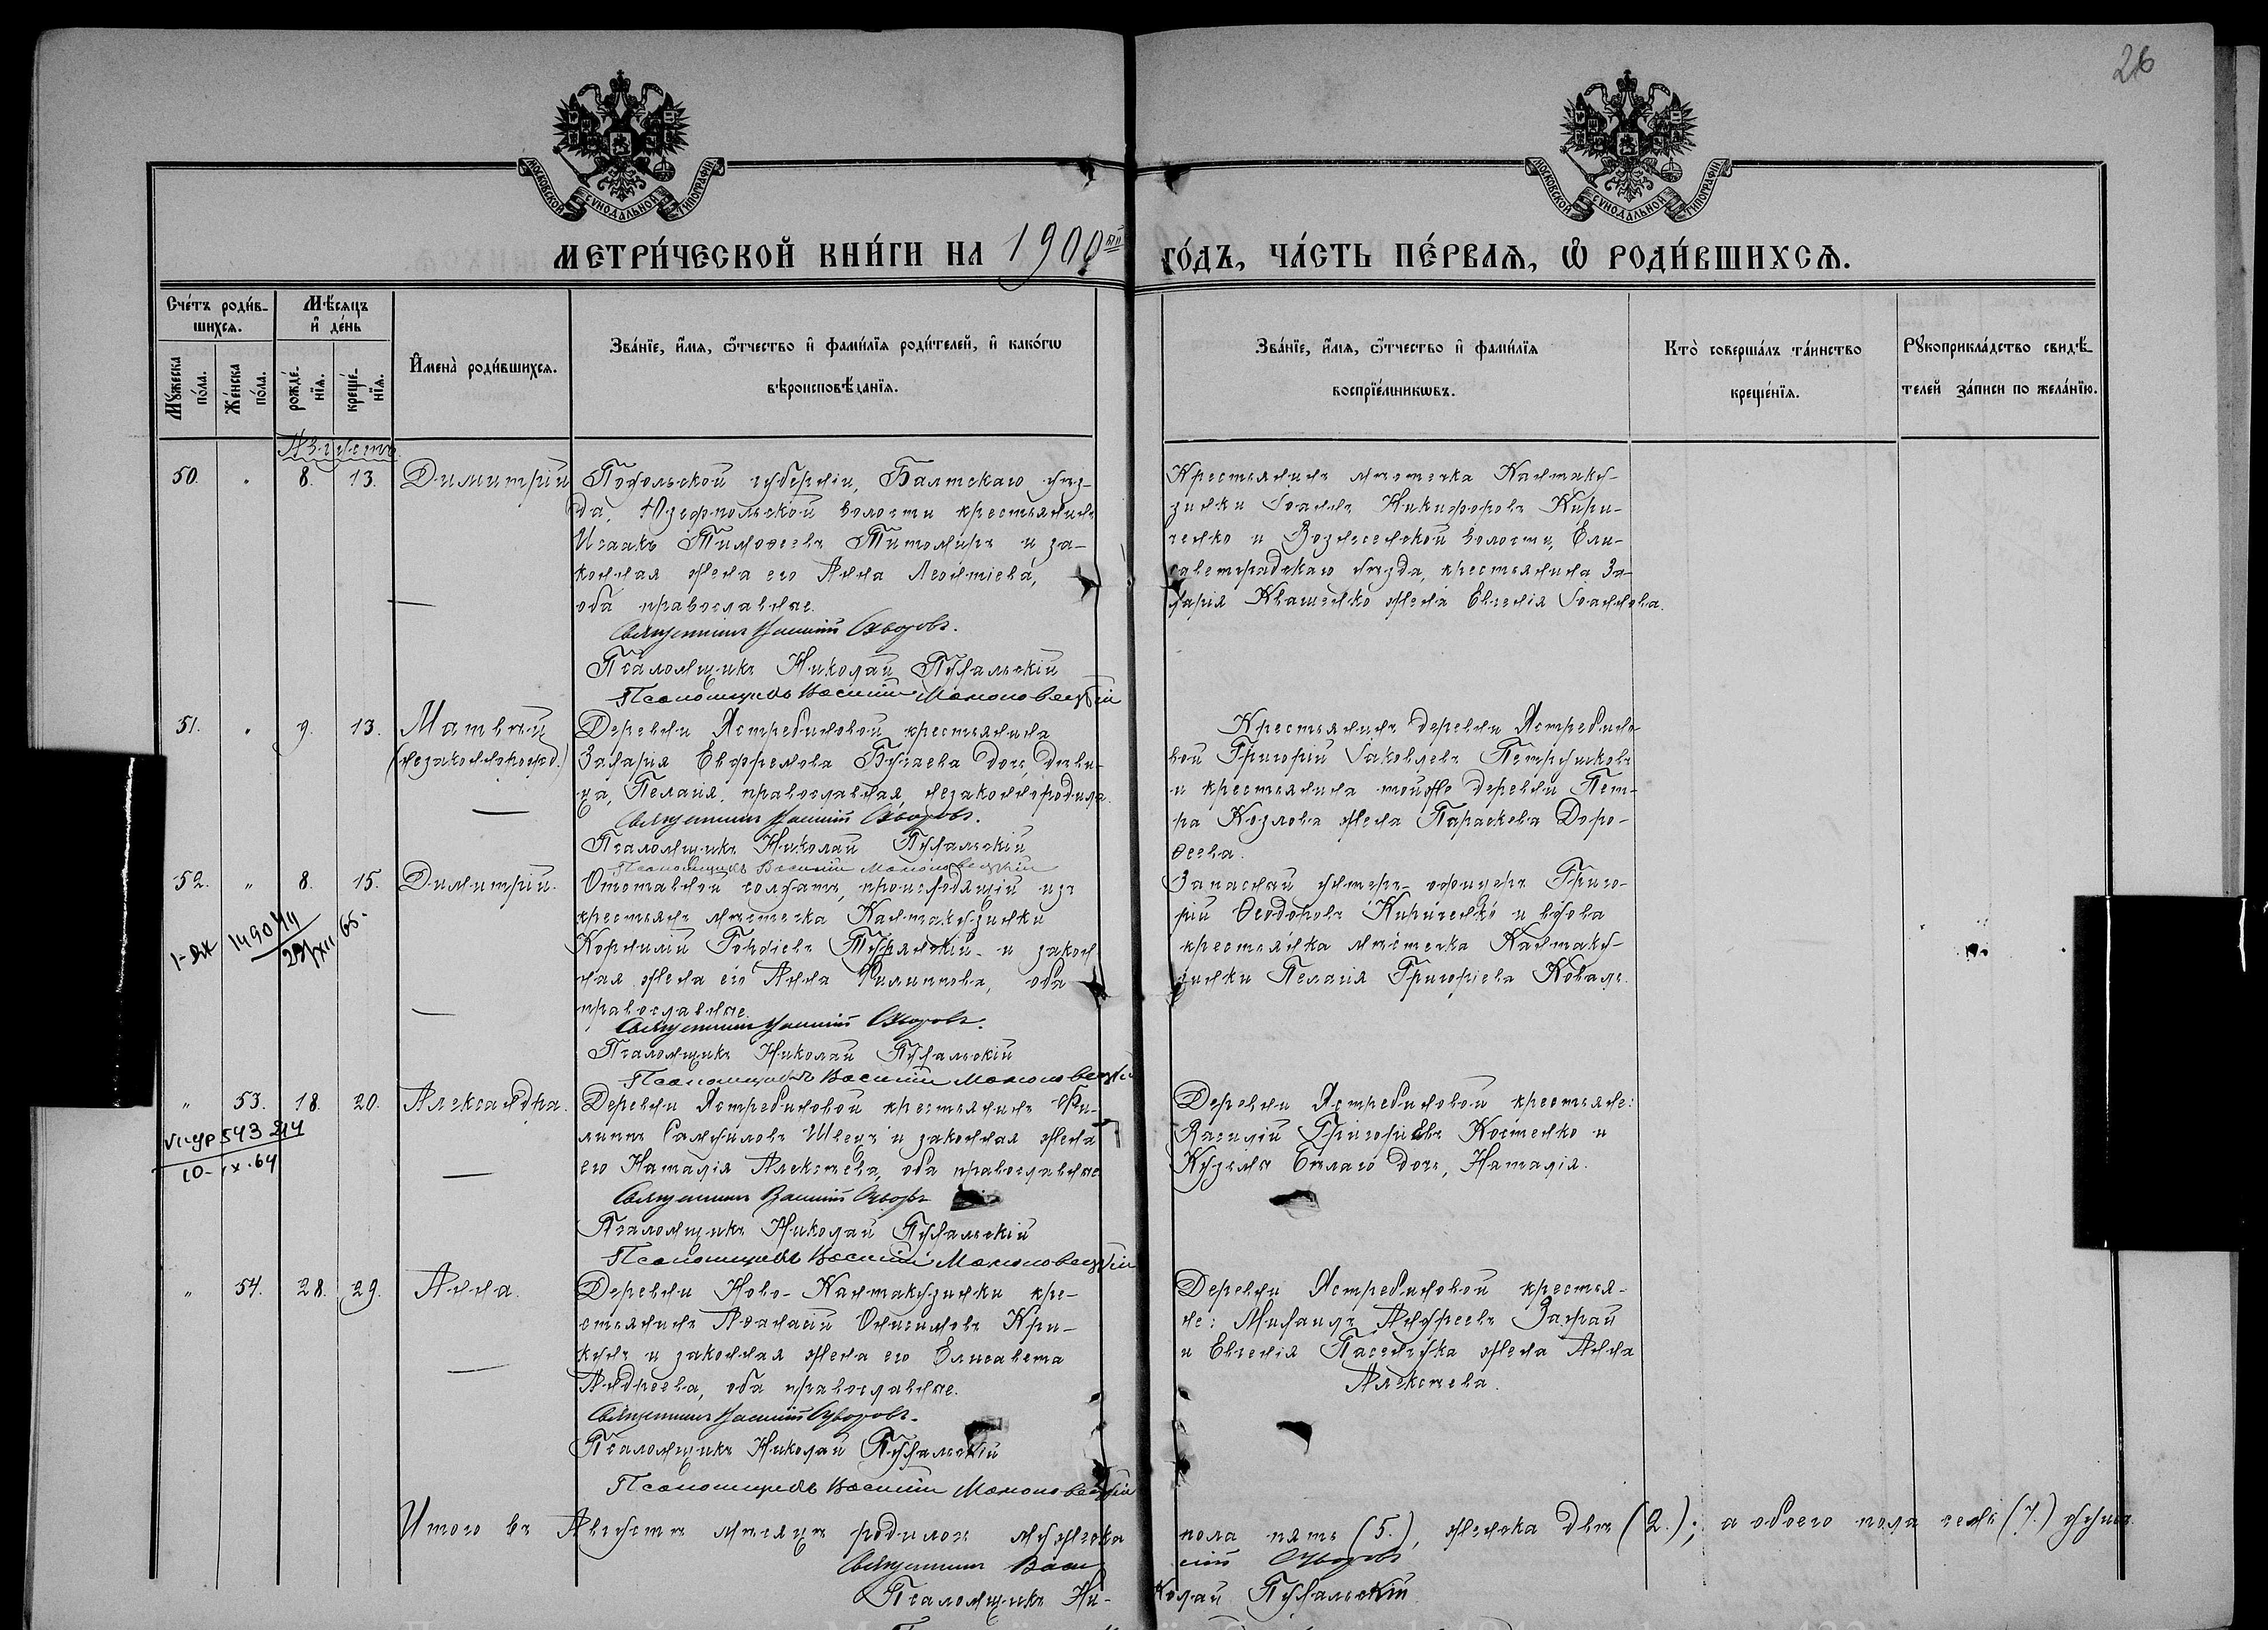 26
МОСКОВСКОЙ СУНОДАЛЬНОЙ ТИПОГРАФІИ
МОСКОВСКОЙ СУНОДАЛЬНОЙ ТИПОГРАФІИ
МЕТРИ́ЧЕСКОЙ КНИ́ГИ НА 1900 ый ГО́ДЪ, ЧА́СТЬ ПЕ́РВАѦ, Ѡ҆ РОДИ́ВШИХСѦ.
Сче́тъ роди́в-
шихсѧ.
Мꙋ́жеска по́ла.
Же́нска по́ла.
Мѣ́сѧцъ
и҆ де́нь
рожде́-
нїѧ.
креще́-
нїѧ.
И҆мена̀ роди́вшихсѧ.
Зва́нїе, и҆́мѧ, ѻ҆́тчество и҆ фами́лїѧ роди́телей, и҆ како́гѡ
вѣроисповѣ́данїѧ.
Зва́нїе, и҆́мѧ, ѻ҆́тчество и҆ фами́лїѧ
воспрїе́мникѡвъ.
Кто̀ соверша́лъ та́инство
креще́нїѧ.
Рꙋкоприкла́дство свидѣ́-
телей за́писи по жела́нїю.
Августъ
50. " 8. 13. Димитрій
Подольской губерніи, Балтскаго уѣз-
да, Юзефпольской волости крестьянинъ
Исаакъ Тимоѳеевъ Титомиръ и за-
конная жена его Анна Леонтіева,
оба православные.
Священникъ Василій Скворовъ.
Псаломщикъ Николай Пухальскій
Псаломщикъ Василій
Крестьянинъ мѣстечка Кантаку-
зинки Іоаннъ Никифоровъ Кири-
ченко и Вознесенской волости, Ели-
саветградскаго уѣзда, крестьянина За-
харія Квашенко жена Евгенія Іоаннова.
51. " 9. 13. Матвѣй
(незаконнорожд.)
Деревни Ястребиновой крестьянина
Захарія Евфремова Бугаева дочь, дѣви-
ца, Пелагія, православная, незаконнородила.
Священникъ Василій Скворовъ.
Псаломщикъ Николай Пухальскій
Псаломщикъ Василій
Крестьянинъ деревни Ястребино-
вой Григорій Іаковлевъ Петрушковъ
и крестьянина тойже деревни Пет-
ра Козлова жена Параскева Доро-
ѳеева.
52. " 8. 15. Димитрій.
Отставной солдатъ, происходящій изъ
крестьянъ мѣстечка Кантакузинки
Корнилій Гордіевъ и закон
ная жена его Анна Филиппова, оба
православные.
Священникъ Василій Скворовъ.
Псаломщикъ Николай Пухальскій
Псаломщикъ Василій
Запасный унтеръ-офицеръ Григо-
рій Ѳеодоровъ Кириченко и вдова
крестьянка мѣстечка Кантаку-
зинки Пелагія Григоріева Коваль.
" 53. 18. 20. Александра.
VI-УР 543 214
10-IX-64
Деревни Ястребиновой крестьянинъ Фи-
липпъ Самуиловъ Швецъ и законная жена
его Наталія Алексѣева, оба православные
Священникъ Василій Скворовъ
Псаломщикъ Николай Пухальскій
Псаломщикъ Василій
Деревни Ястребиновой крестьяне:
Василій Григорьевъ Костенко и
Кузьмы Бѣлаго дочь, Наталія.
" 54. 28. 29. Анна.
Деревни Ново-Кантакузинки кре-
стьянинъ Аѳанасій Онисимовъ Кри-
кунъ и законная жена его Елисавета
Андреева, оба православные.
Священникъ Василій Скворовъ.
Псаломщикъ Николай Пухальскій
Псаломщикъ Василій
Деревни Ястребиновой крестья-
не: Михаилъ Андреевъ
и Евгенія жена Анна
Алексѣева.
Итого въ Августѣ мѣсяцѣ родилось мужеска пола пять (5.), женска двѣ (2.); а обоего пола семь (7.) душъ
Священникъ Василій Скворовъ
Псаломщикъ Николай Пухальскій